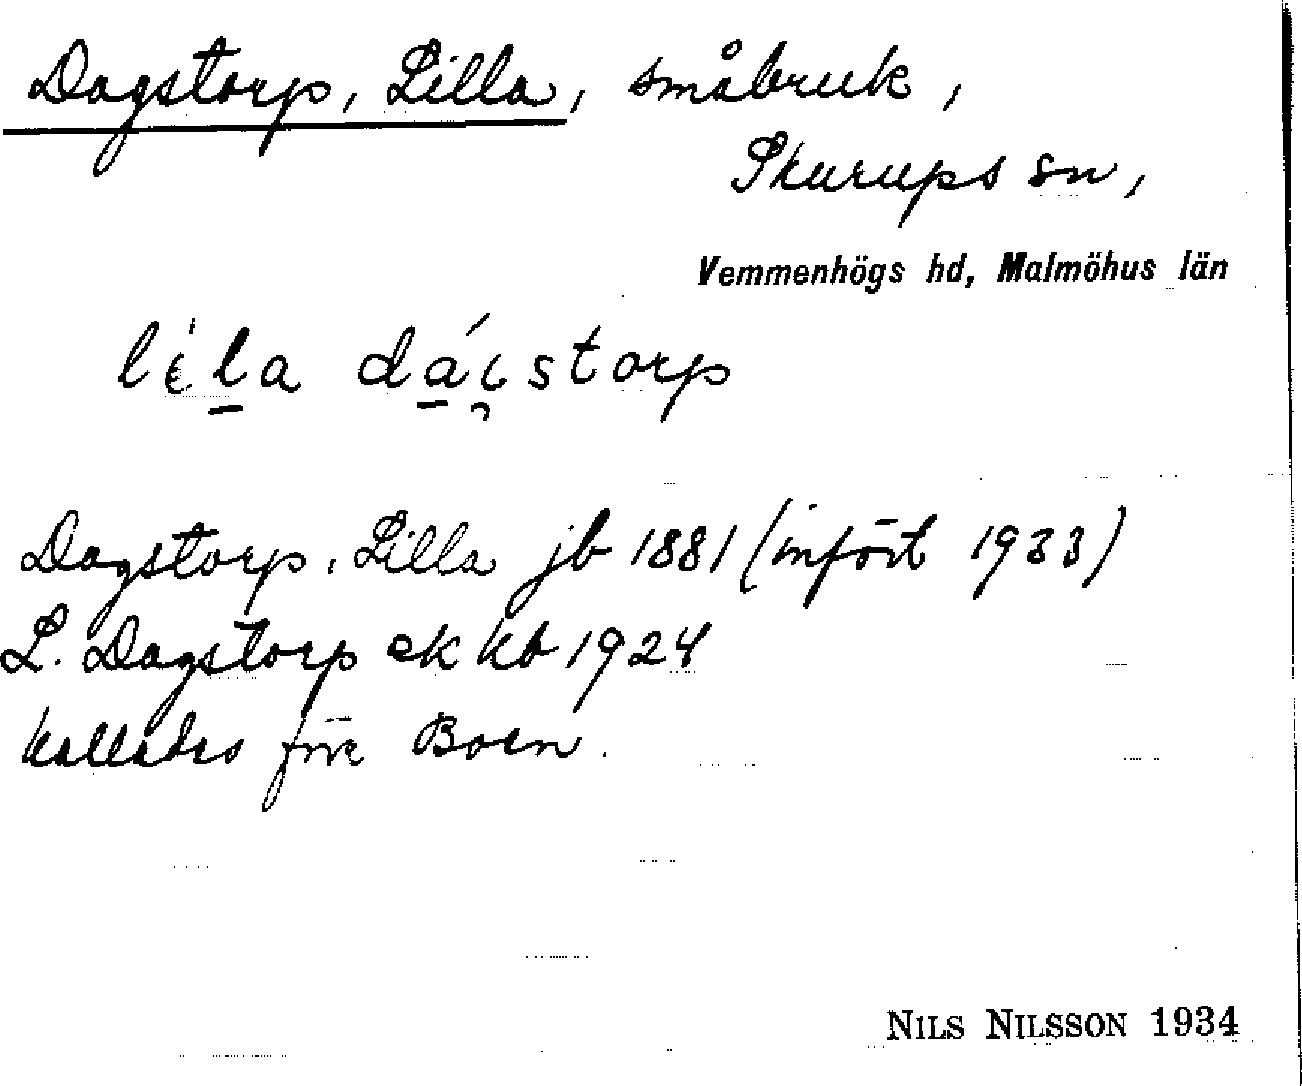 Dagstorp, Lilla, småbruk,
Skurups sn,
Vemmenhögs hd, Malmöhus län
lila dáistorp
Dagstorp, Lilla jb 1881 (infört 1933)
L. Dagstorp ek kb 1924
kallades förr Boen.
NILS NILSSON 1934